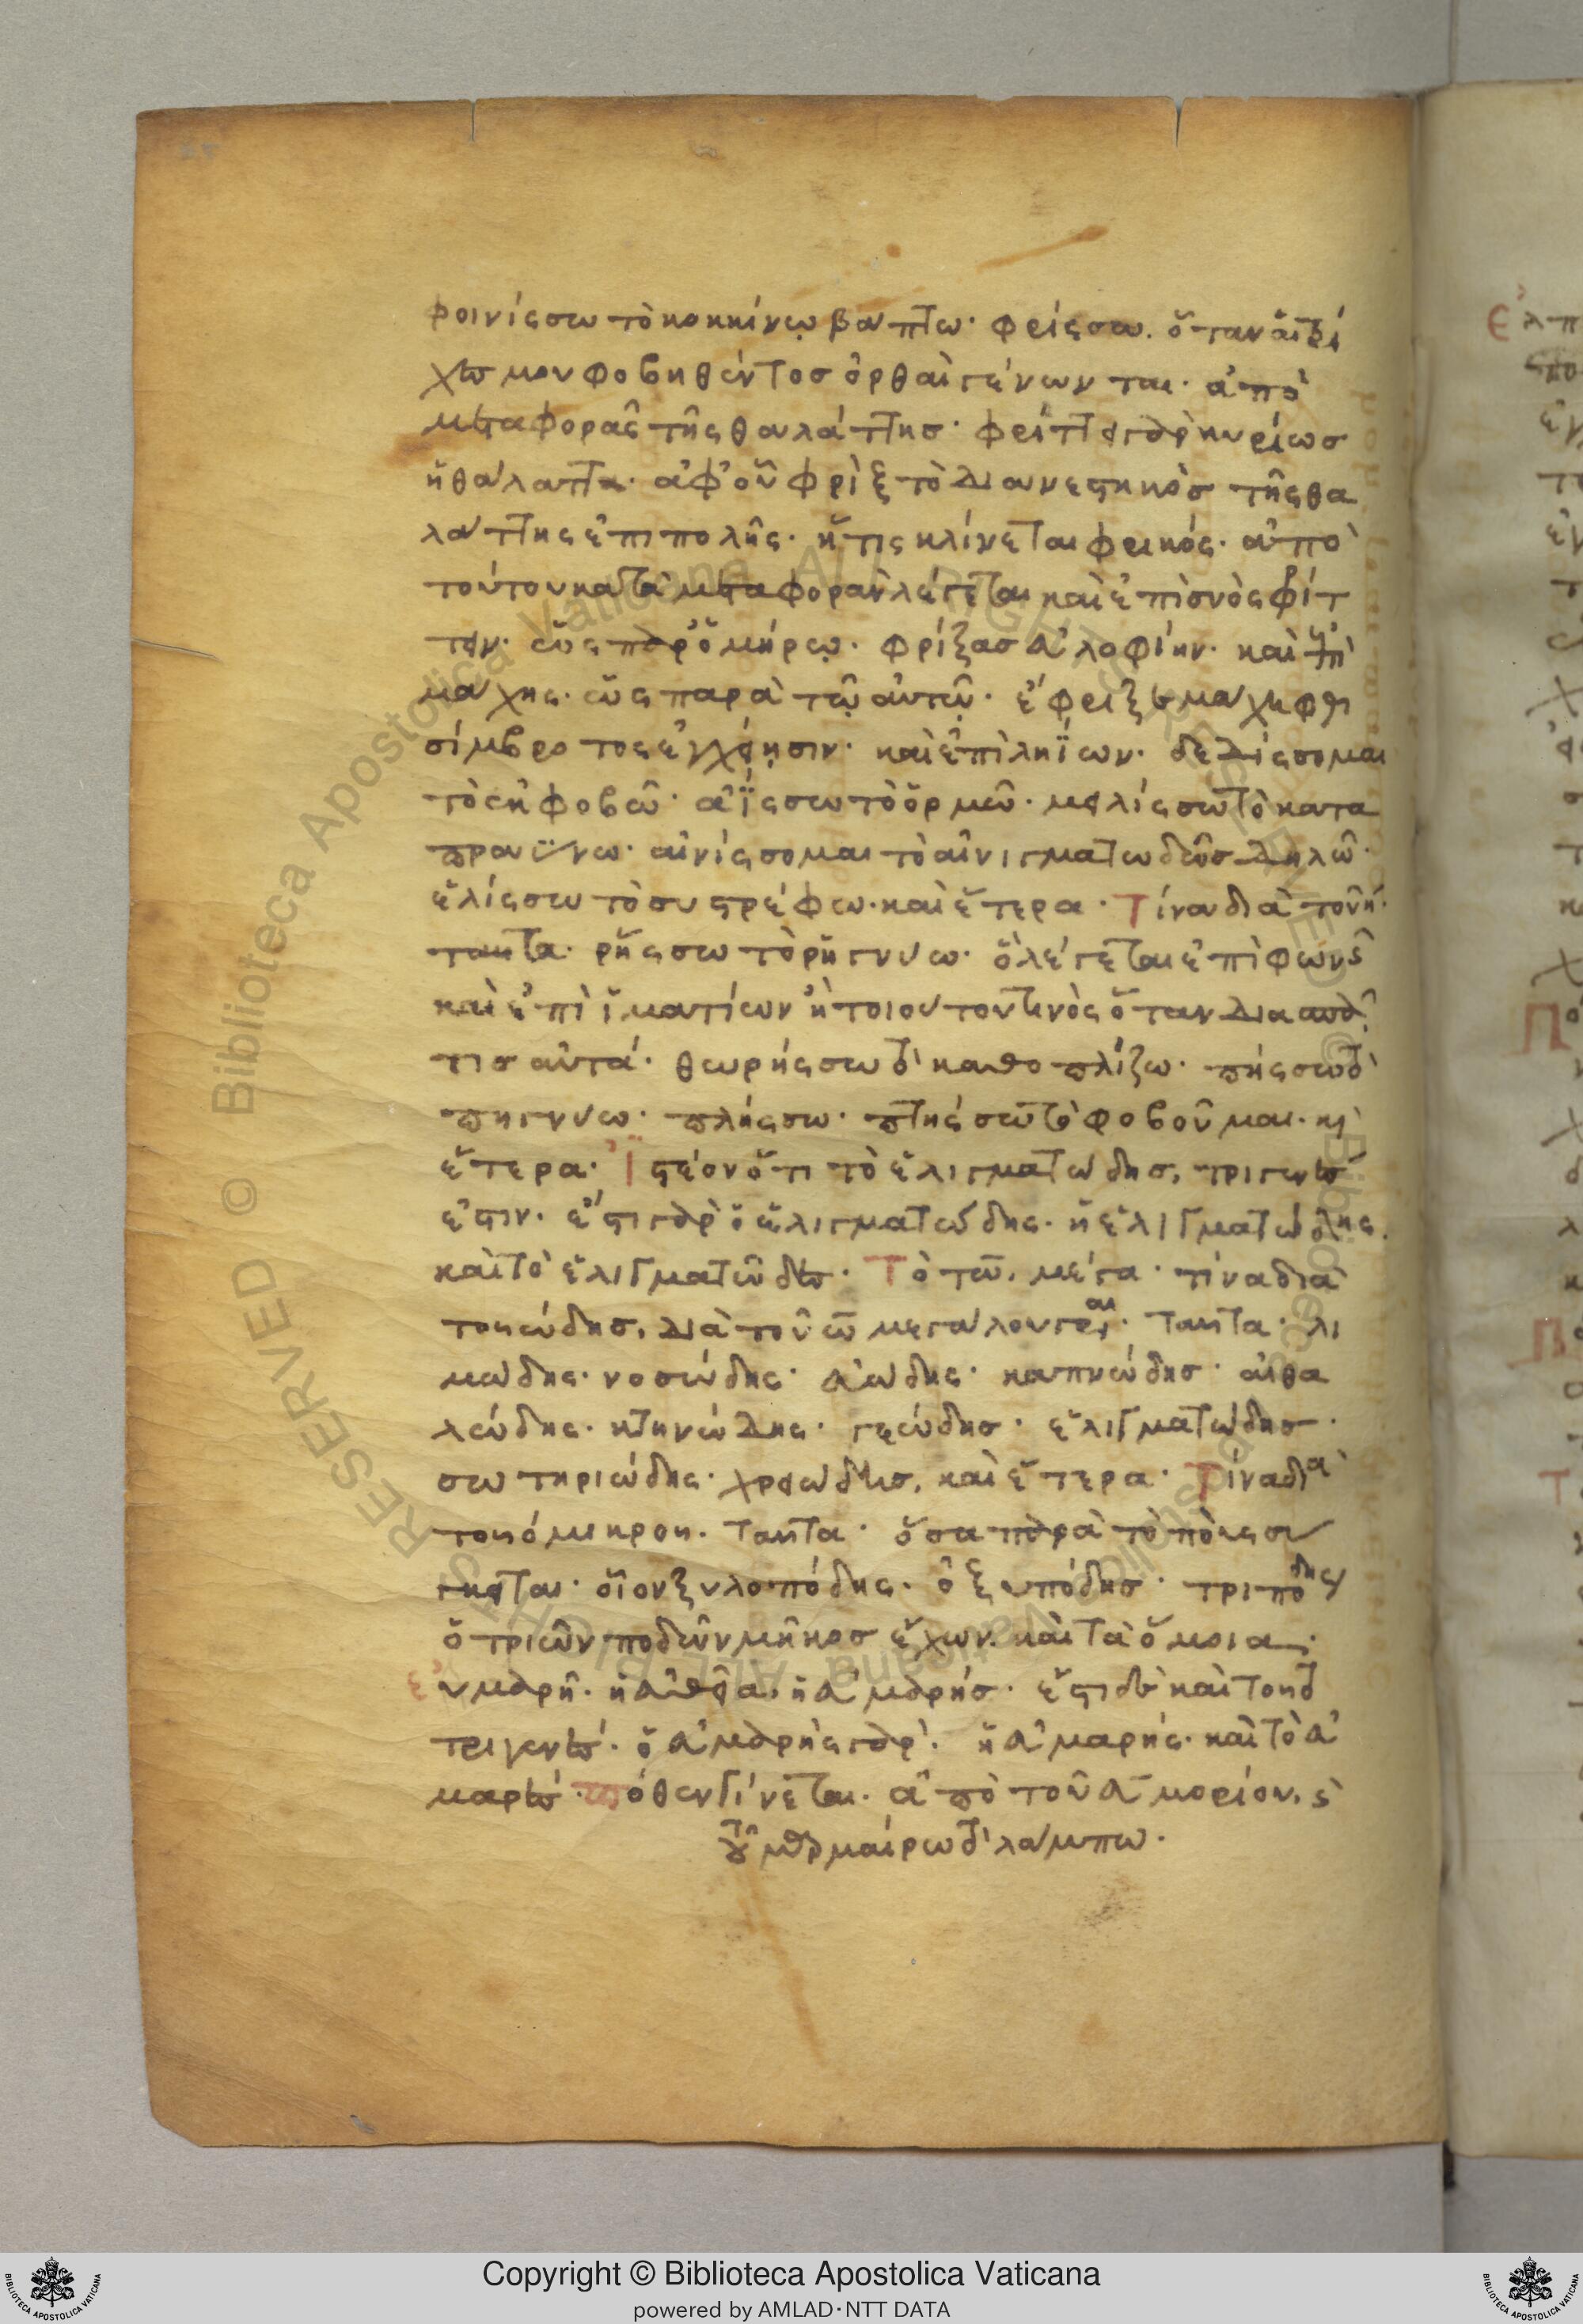 φοινίσσω τὸ κοκκίνῳ βάπτω· φρίσσω. ὅταν αἱ τρί
χες μου φοβηθέντος ὀρθαὶ γένωνται· ἀπὸ
μεταφορᾶς τῆς θαλάττης· φρίττει γὰρ κυρίως
ἡ θάλαττα· ἀφ' οὗ φρὶξ τὸ διανεστηκὸς τῆς θα
λάττης ἐπιπολῆς· ἥτις κλίνεται φρικός· ἀπὸ
τούτου κατὰ μεταφορὰν λέγεται καὶ ἐπὶ συὸς φρίτ
τειν· ὡς παρ' ὁμήρῳ· φρίξας λοφιήν· καὶ ἐπὶ
μάχης· ὡς παρὰ τῷ αὐτῷ· ἔφριξε μάχη φθι
σίμβροτος ἐγχείῃσιν· καὶ ἐπὶ ληΐων· δεδίσσομαι
τὸ ἐκφοβῶ· ἀΐσσω τὸ ὁρμῶ· μειλίσσω τὸ κατα
πραΰνω· αἰνίσσομαι τὸ αἰνιγματωδῶς δηλῶ·
ἑλίσσω τὸ συστρέφω· καὶ ἕτερα· Τίνα διὰ τοῦ η·
ταῦτα· ῥήσσω τὸ ῥηγνύω· ὃ λέγεται ἐπὶ φωνῆς
καὶ ἐπὶ ἱματίων ἢ τοιούτου τινὸς ὅταν
τις αὐτά· θωρήσσω τὸ καθοπλίζω· πήσσω τὸ
πηγνύω· πλήσσω· πτήσσω τὸ φοβοῦμαι· καὶ
ἕτερα· Ἰστέον ὅτι τὸ ἑλιγματώδης, τριγενές
ἐστιν· ἔστι γὰρ ὁ ἑλιγματώδης· ἡ ἑλιγματώδης.
καὶ τὸ ἑλιγματῶδες· Τὸ τω, μέγα· τίνα διὰ
τοῦ ώδης, διὰ τοῦ ω μεγάλου γράφεται· ταῦτα· λι
μώδης· νοσώδης· καπνώδης· αἰθα
λώδης· κτηνώδης· γεώδης· ἑλιγματώδης·
σωτηριώδης· χρειώδης, καὶ ἕτερα· Τίνα διὰ
τοῦ ο μικροῦ. ταῦτα· ὅσα παρὰ τὸ ποὺς συ
γκειται· οἷον ξυλοπόδης· ὀξυπόδης· τριπόδης
ὁ τριῶν ποδῶν μῆκος ἔχων· καὶ τὰ ὅμοια·
ἔστι δὲ καὶ τοῦτο
τριγενές· ὁ ἀμαρὴς γὰρ· ἡ ἀμαρής· καὶ τὸ ἀ
μαρές· πόθεν γίνεται· ἀπὸ τοῦ
μαίρω τὸ λάμπω·